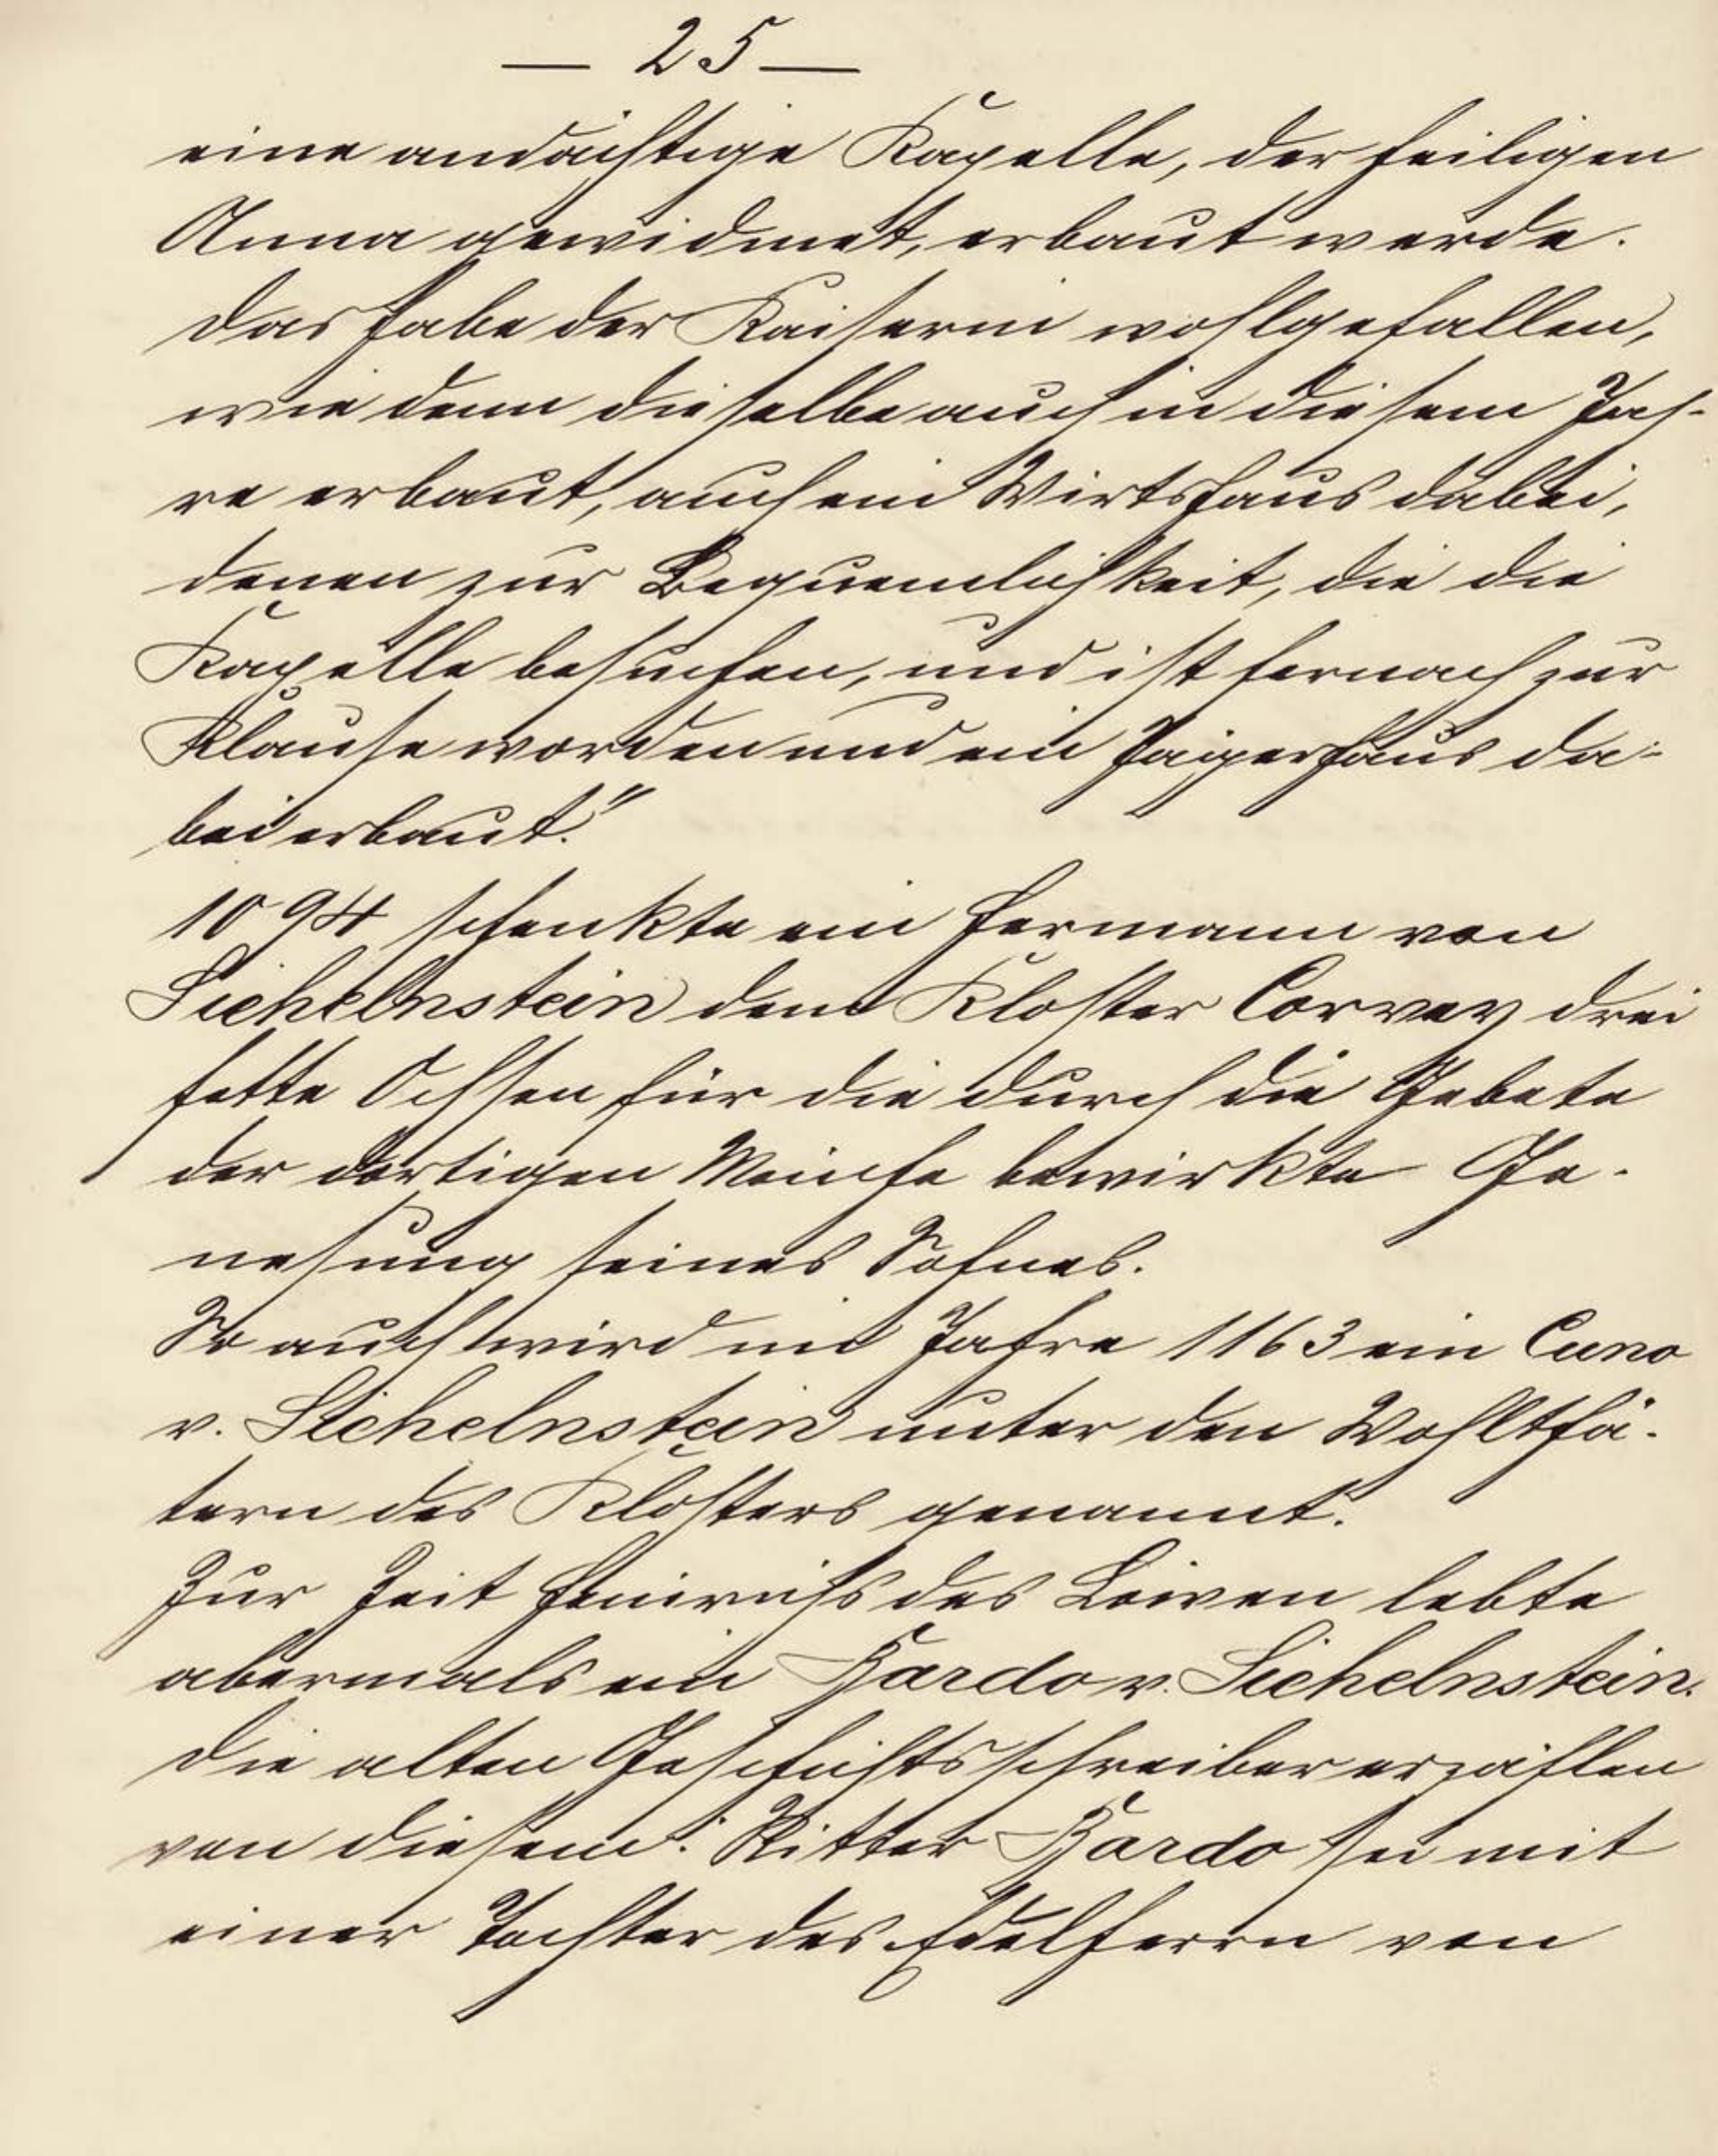 — 25 —
eine andächtige Kapelle, der heiligen
Anna gewidmet, erbaut werde.
Das habe der Kaiserin wohlgefallen,
wie denn dieselbe auch in diesem Jah-
re erbaut, auch ein Wirtshaus dabei,
denen zur Bequemlichkeit, die die
Kapelle besuchen, und ist hernach zur
Klause worden und ein Jägerhaus da-
bei erbaut."
1094 schenkte ein Hermann von
Sichelnstein dem Kloster Corvey drei
fette Ochsen für die durch die Gebete
der dortigen Mönche bewirkte Ge-
nesung seines Sohnes.
So auch wird im Jahre 1163 ein Cuno
v. Sichelnstein unter den Wohlthä-
tern des Klosters genannt.
Zur Zeit Heinrichs des Löwen lebte
abermals ein Bardo v. Sichelnstein.
Die alten Geschichtsschreiber erzählen
von diesem: Ritter Bardo sei mit
einer Tochter des Edelherrn von